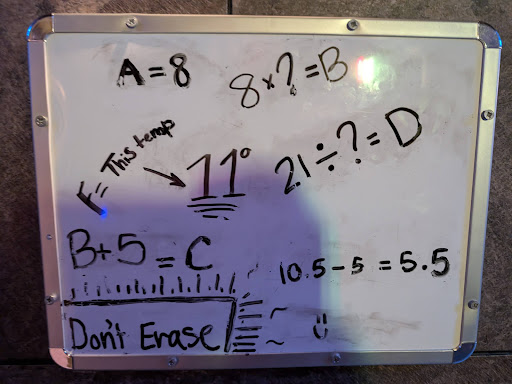 A = 8
8 × ? = B
F = This temp
11°
21 ÷ ? = D
B + 5 = C
10.5 - 5 = 5.5
Don't Erase